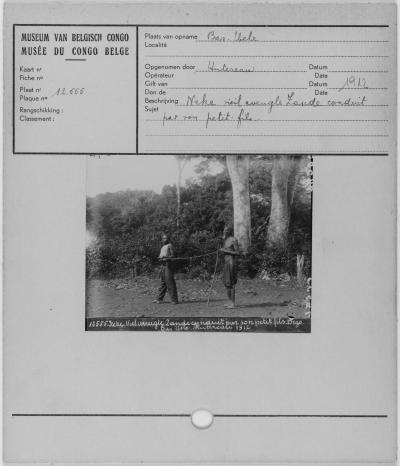 MUSEUM VAN BELGISCH CONGO
MUSÉE DU CONGO BELGE
Kaart nr
Fiche no
Plaat nr
Plaque no 12.555
Rangschikking :
Classement :
Plaats van opname Bas. Uele
Localité
Opgenomen door Hutereau Datum
Opérateur Date
Gift van Datum 1912
Don de Date
Beschrijving Neke vieil aveugle Zande conduit
Sujet par son petit-fils.
12555. Neke Vieil aveugle Zande conduit par son petit fils
Bas Uele. Hutereau 1912